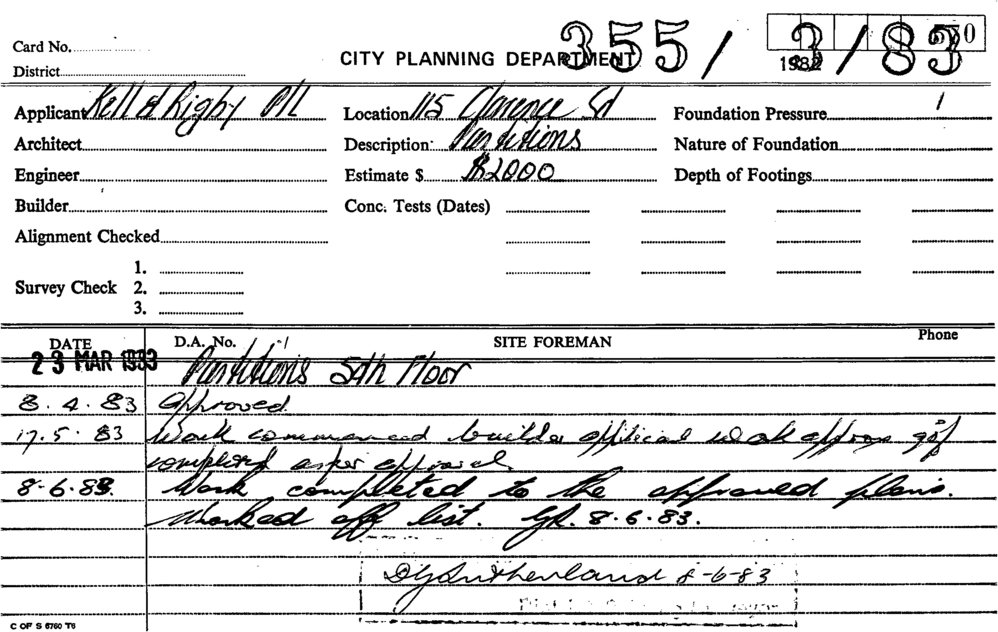 355/3/83
Card No.
CITY PLANNING DEPARTMENT
District
Applicant Kell & Rigby P/L Location 115 Clarence St Foundation Pressure
Architect Description Partitions Nature of Foundation
Engineer Estimate $ $2000 Depth of Footings
Builder Conc. Tests (Dates)
Alignment Checked
1.
Survey Check 2.
3.
DATE D.A. No. SITE FOREMAN Phone
23 MAR 1983 Partitions 5th Floor
8.4.83 Approved
17.5.83 Work commenced builder work
completed as per approval
8.6.83. Work completed to the approved plans.
Marked off list. 8.6.83.
DG Sutherland 8-6-83
C OF S 6760 T6